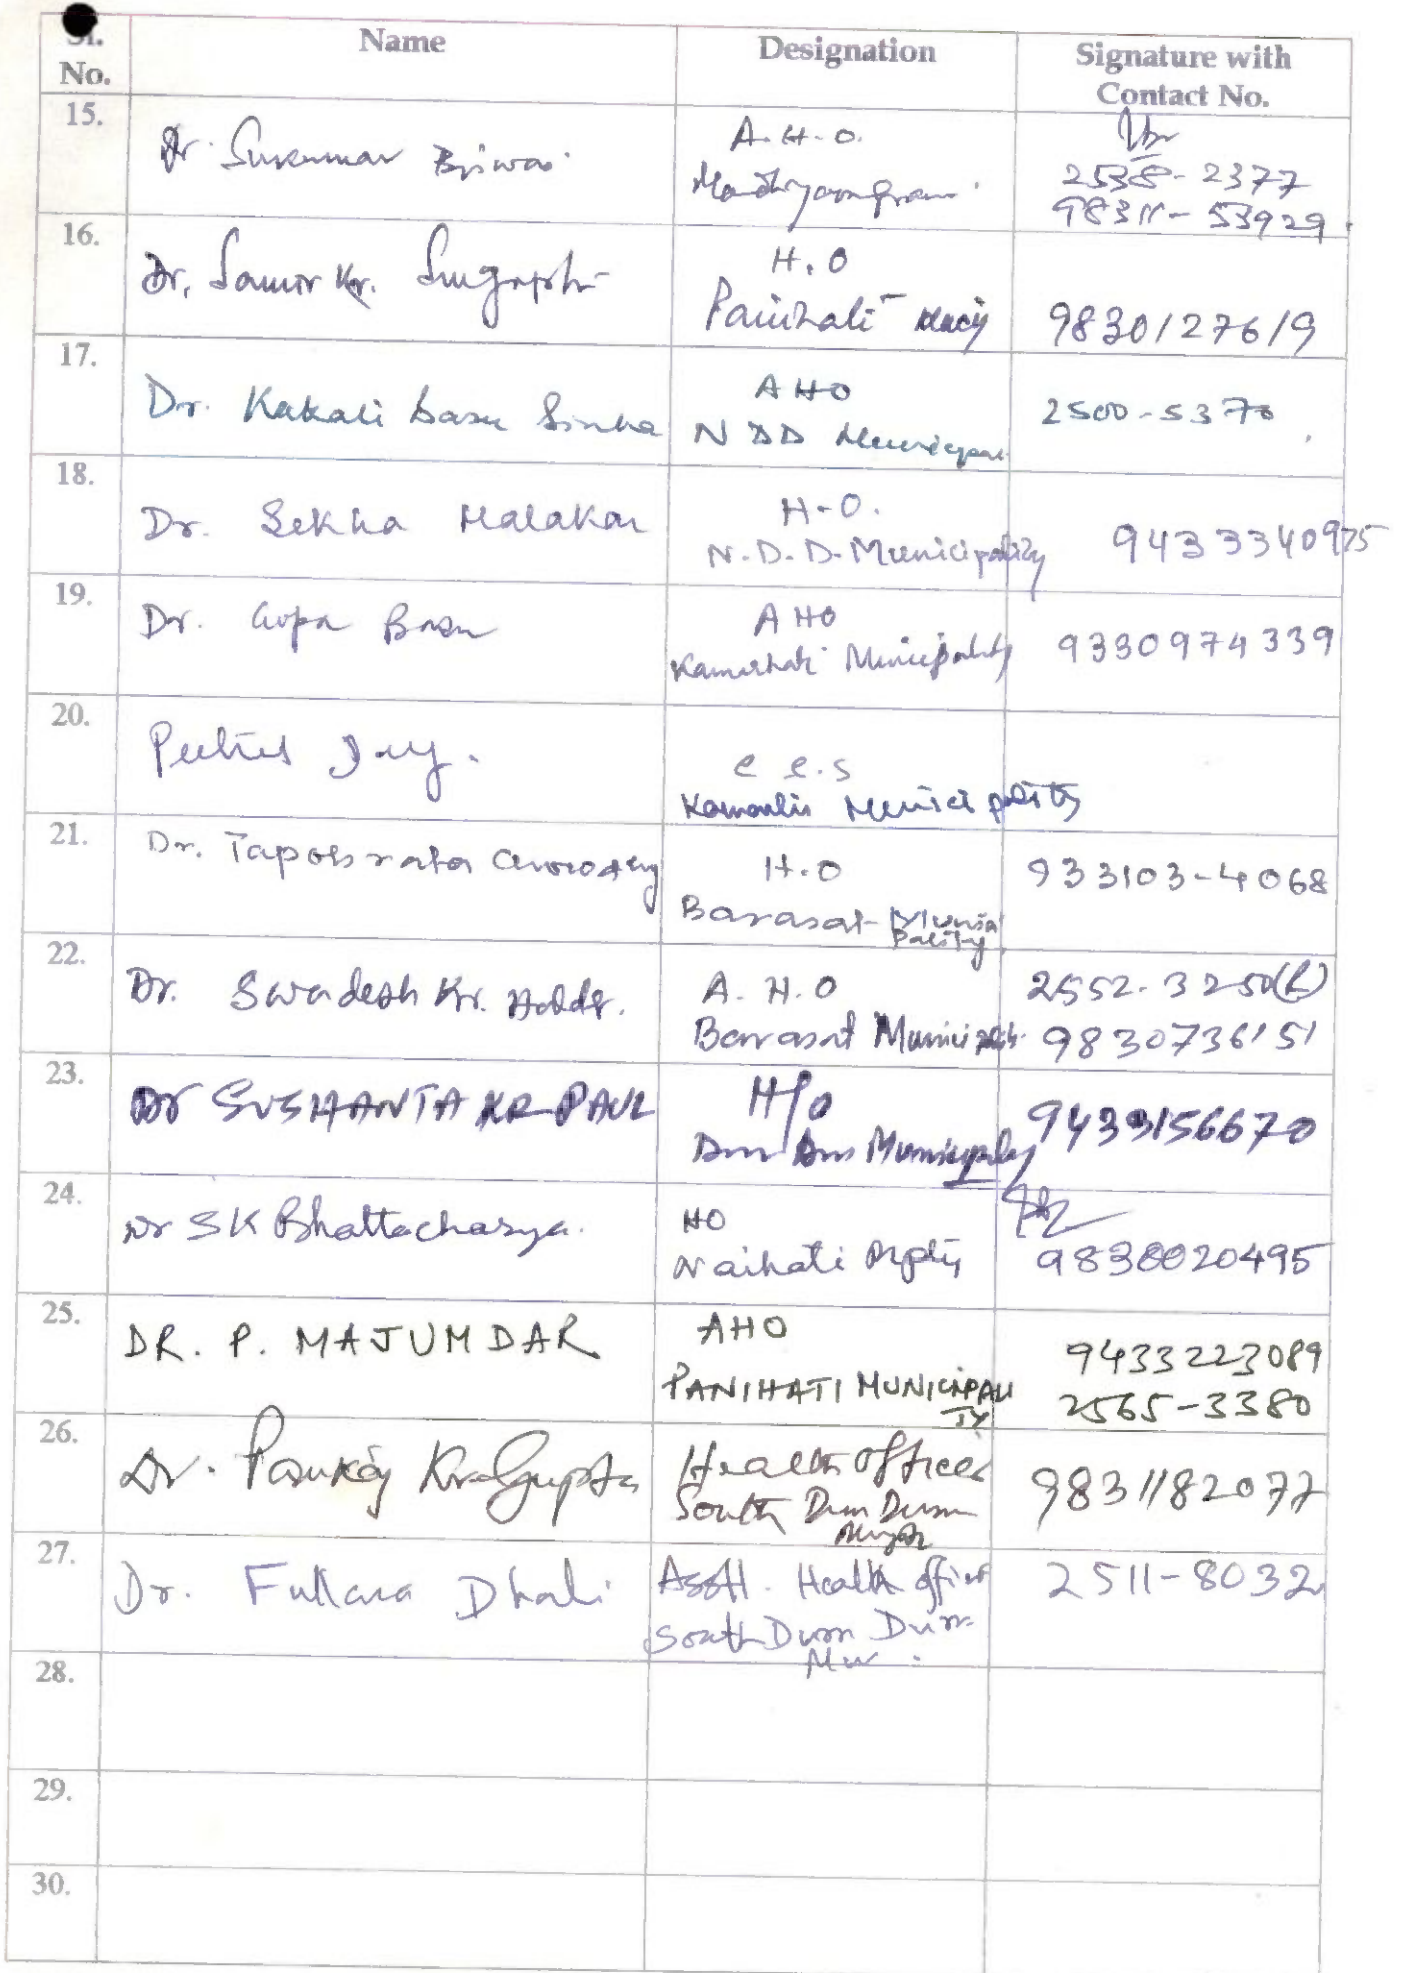 Sl. No. Name Designation Signature with Contact No.
15. Dr. Sukumar Biswas A.H.O. Madhyamgram 2538-2377
98311-53929
16. Dr. Samir Kr. Sengupta H.O
Panihati 9830127619
17. Dr. Kakali Basu Sinha AHO
NDD Municipal 2500-5370
18. Dr. Sekha Malakar H.O.
N.D.D. Municipality 9433340975
19. Dr. Gopa Basu AHO
Kamarhati Municipality 9330974339
20.
Municipality
21. Dr. H.O 933103-4068
Barasat Municipality
22. Dr. Swadesh Kr. Halder. A.H.O 2552-3250(R)
Barasat 9830736151
23. Dr SUSHANTA KR PAUL H/O
Dum Dum Municipality 9433156670
24. Dr SK Bhattacharya. HO
Naihati 9838020495
25. DR. P. MAJUMDAR AHO 9433223089
PANIHATI MUNICIPALITY 2565-3380
26. Dr. Pankaj Kr Gupta Health Officer
South Dum Dum 9831182077
27. Dr. Fullara Dhali Asstt. Health officer 2511-8032
South Dum Dum
28.
29.
30.